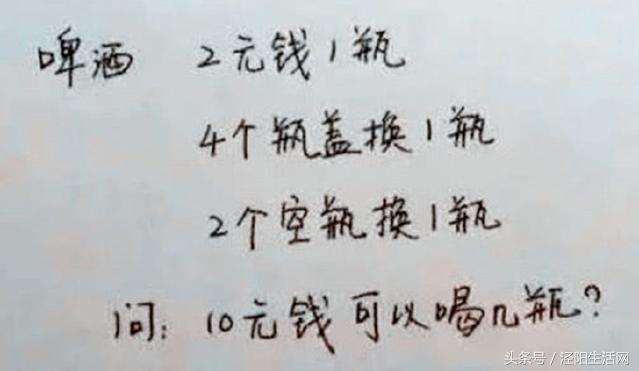 啤酒 2元钱1瓶
4个瓶盖换1瓶
2个空瓶换1瓶
问: 10元钱可以喝几瓶?
头条号 / 泾阳生活网